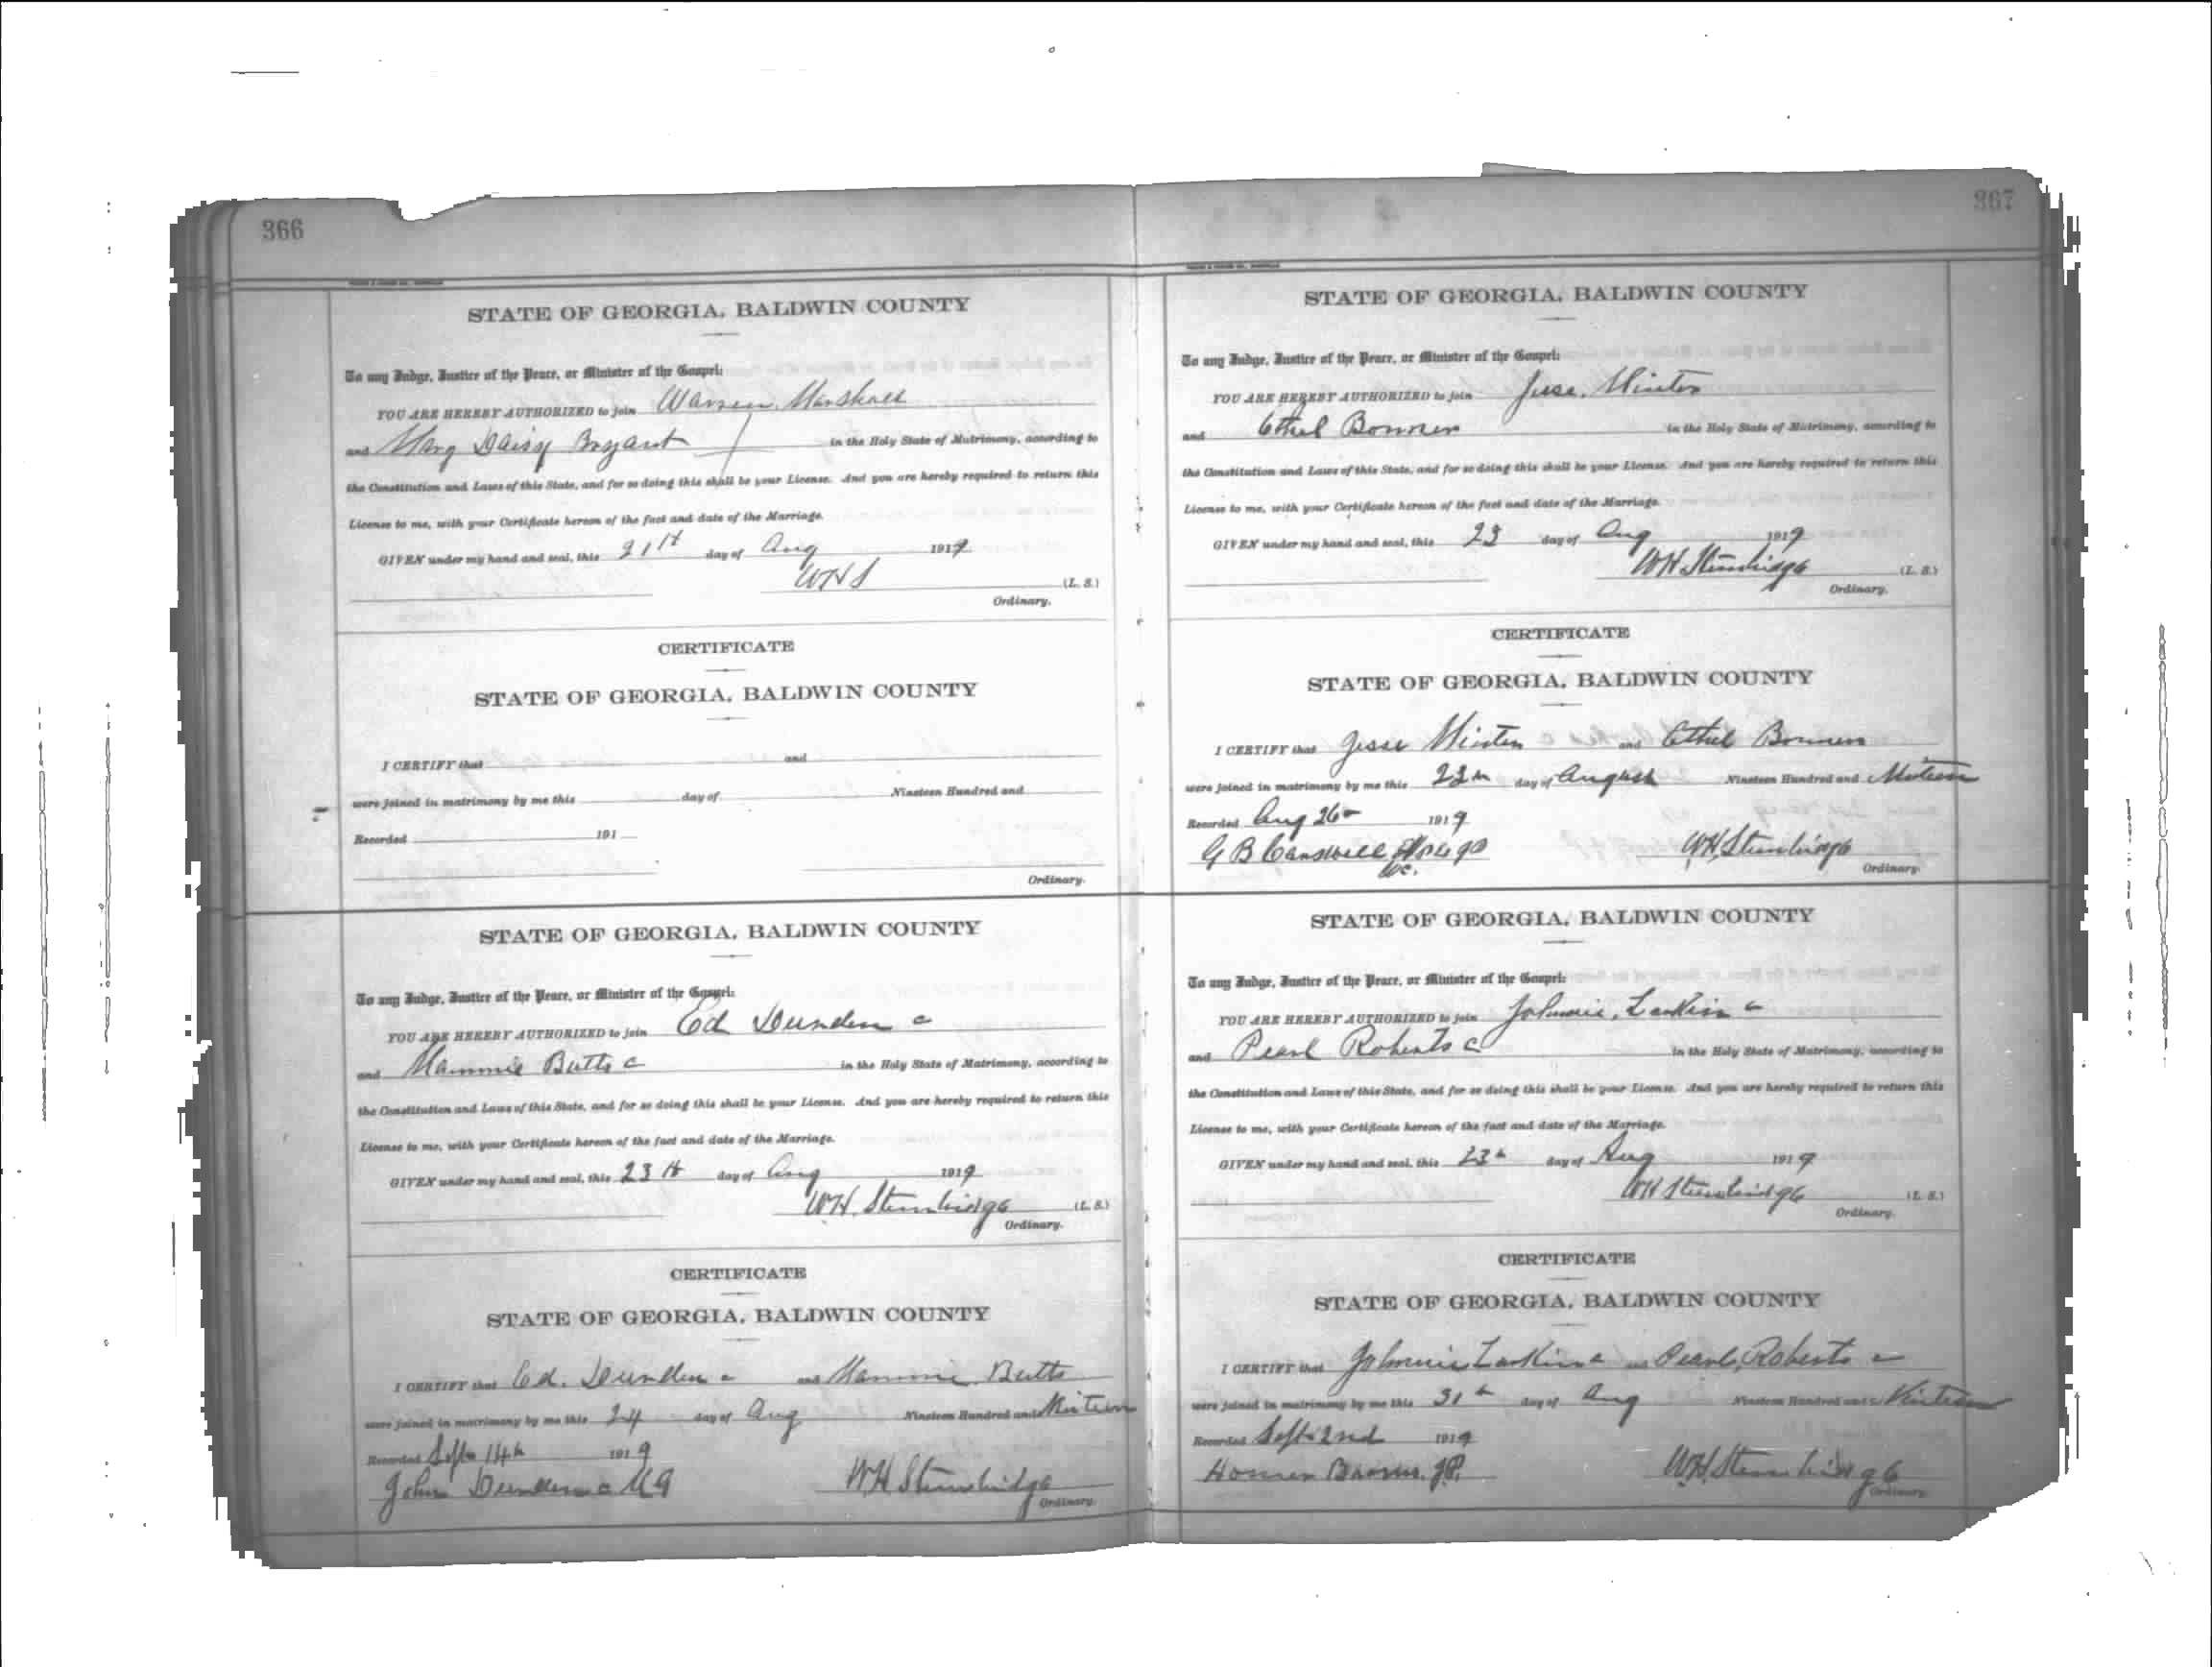 366
STATE OF GEORGIA, BALDWIN COUNTY
To any Judge, Justice of the Peace, or Minister of the Gospel:
YOU ARE HEREBY AUTHORIZED to join Warren Marshall
and Mary Daisy Bryant in the Holy State of Matrimony, according to
the Constitution and Laws of this State, and for so doing this shall be your License. And you are hereby required to return this
License to me, with your Certificate hereon of the fact and date of the Marriage.
GIVEN under my hand and seal, this 21st day of Aug 1919
WHS (L. S.)
Ordinary.
CERTIFICATE
STATE OF GEORGIA, BALDWIN COUNTY
I CERTIFY that and
were joined in matrimony by me this day of Nineteen Hundred and
Recorded 191
Ordinary.
STATE OF GEORGIA, BALDWIN COUNTY
To any Judge, Justice of the Peace, or Minister of the Gospel:
YOU ARE HEREBY AUTHORIZED to join Ed c
and Mammie Butts c in the Holy State of Matrimony, according to
the Constitution and Laws of this State, and for so doing this shall be your License. And you are hereby required to return this
License to me, with your Certificate hereon of the fact and date of the Marriage.
GIVEN under my hand and seal, this 23rd day of Aug 1919
WH. Stembridge (L. S.)
Ordinary.
CERTIFICATE
STATE OF GEORGIA, BALDWIN COUNTY
I CERTIFY that Ed. c and Mammie Butts
were joined in matrimony by me this 24 day of Aug Nineteen Hundred and Ninteen
Recorded Sept 14th 1919
John c MG WH Stembridge
Ordinary.
367
STATE OF GEORGIA, BALDWIN COUNTY
To any Judge, Justice of the Peace, or Minister of the Gospel:
YOU ARE HEREBY AUTHORIZED to join Jesse Minter
and Ethel Bonner in the Holy State of Matrimony, according to
the Constitution and Laws of this State, and for so doing this shall be your License. And you are hereby required to return this
License to me, with your Certificate hereon of the fact and date of the Marriage.
GIVEN under my hand and seal, this 23 day of Aug 1919
WH Stembridge (L. S.)
Ordinary.
CERTIFICATE
STATE OF GEORGIA, BALDWIN COUNTY
I CERTIFY that Jesse Minter and Ethel Bonner
were joined in matrimony by me this 23rd day of August Nineteen Hundred and Ninteen
Recorded Aug 26 1919
G B Carswell WH Stembridge
Ordinary.
STATE OF GEORGIA, BALDWIN COUNTY
To any Judge, Justice of the Peace, or Minister of the Gospel:
YOU ARE HEREBY AUTHORIZED to join Johnnie Larkin c
and Pearl Roberts c in the Holy State of Matrimony, according to
the Constitution and Laws of this State, and for so doing this shall be your License. And you are hereby required to return this
License to me, with your Certificate hereon of the fact and date of the Marriage.
GIVEN under my hand and seal, this 23rd day of Aug 1919
WH Stembridge (L. S.)
Ordinary.
CERTIFICATE
STATE OF GEORGIA, BALDWIN COUNTY
I CERTIFY that Johnnie Larkin c and Pearl Roberts c
were joined in matrimony by me this 31st day of Aug Nineteen Hundred and Ninteen
Recorded Sept 2nd 1919
J.P. WH. Stembridge
Ordinary.